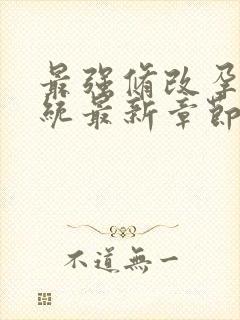 最强脩改孕
统最新章節
不道無一